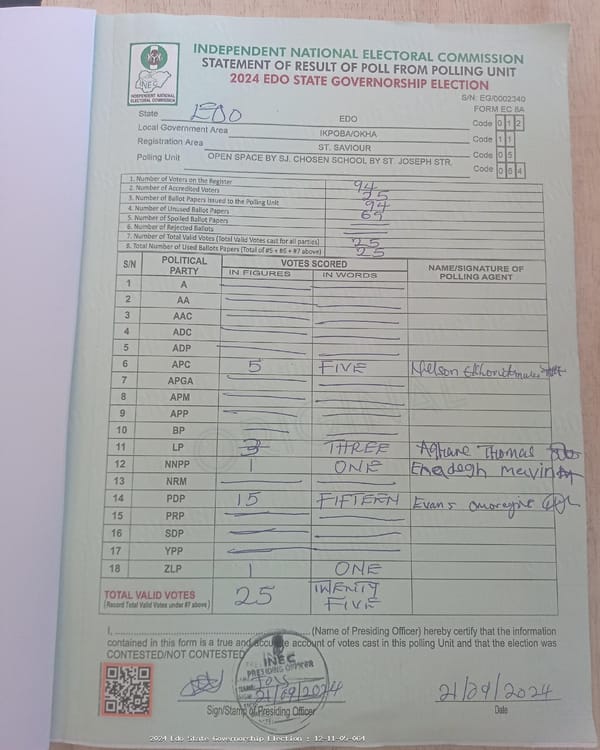 INDEPENDENT NATIONAL ELECTORAL COMMISSION
STATEMENT OF RESULT OF POLL FROM POLLING UNIT
2024 EDO STATE GOVERNORSHIP ELECTION
INEC
INDEPENDENT NATIONAL
ELECTORAL COMMISSION
S/N: EG/0002340
FORM EC 8A
State EDO EDO Code 0 1 2
Local Government Area IKPOBA/OKHA Code 1 1
Registration Area ST. SAVIOUR Code 0 5
Polling Unit OPEN SPACE BY SJ. CHOSEN SCHOOL BY ST. JOSEPH STR. Code 0 6 4
1. Number of Voters on the Register 94
2. Number of Accredited Voters 25
3. Number of Ballot Papers Issued to the Polling Unit 94
4. Number of Unused Ballot Papers 69
5. Number of Spoiled Ballot Papers
6. Number of Rejected Ballots
7. Number of Total Valid Votes (Total Valid Votes cast for all parties) 25
8. Total Number of Used Ballots Papers (Total of #5 + #6 + #7 above) 25
S/N POLITICAL PARTY VOTES SCORED NAME/SIGNATURE OF POLLING AGENT
IN FIGURES IN WORDS
1 A
2 AA
3 AAC
4 ADC
5 ADP
6 APC 5 FIVE Nelson
7 APGA
8 APM
9 APP
10 BP
11 LP 3 THREE Thomas
12 NNPP 1 ONE
13 NRM
14 PDP 15 FIFTEEN Evans
15 PRP
16 SDP
17 YPP
18 ZLP 1 ONE
TOTAL VALID VOTES 25 TWENTY FIVE
(Record Total Valid Votes under #7 above)
I, (Name of Presiding Officer) hereby certify that the information
contained in this form is a true and accurate account of votes cast in this polling Unit and that the election was
CONTESTED/NOT CONTESTED
INEC
PRESIDING OFFICER
21/09/2024
21/09/2024
Sign/Stamp of Presiding Officer Date
2024 Edo State Governorship Election : 12-11-05-064